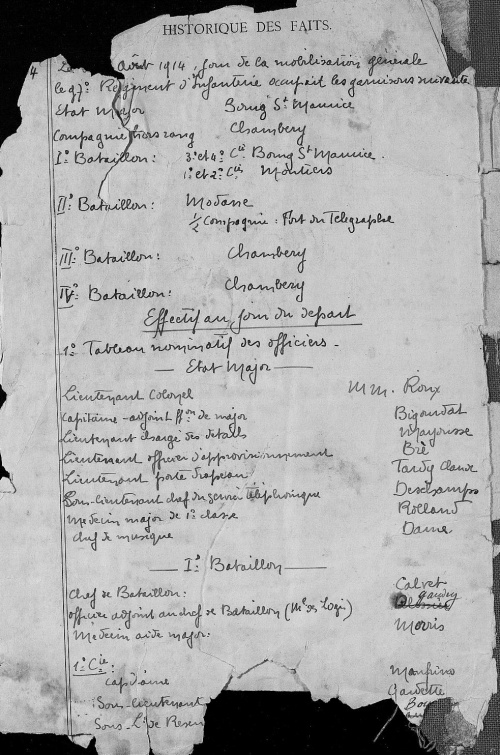 HISTORIQUE DES FAITS.
4
Le Août 1914, jour de la mobilisation générale
le 97º Régiment d'Infanterie occupait les garnisons suivante
Etat Major Bourg St Maurice
Compagnie hors rang Chambery
Iº Bataillon: 3º et 4º Cie Bourg St Maurice.
1º et 2º Cie Moutiers
IIº Bataillon: Modane
½ Compagnie: Fort du Télégraphe
IIIº Bataillon: Chambery
IVº Bataillon: Chambery
Effectif au jour du départ
1º Tableau nominatif des officiers -
Etat Major
Lieutenant Colonel MM. Roux
Capitaine-adjoint ffon de major Bigourdat
Lieutenant chargé des détails Mayousse
Lieutenant officier d'approvisionnement Brè
Lieutenant porte drapeau Tardy Claude
Sous-lieutenant chef du service téléphonique Deschamps
Médecin major de 1º classe Rolland
Chef de musique Dame
Iº Bataillon
Chef de Bataillon: Calvet
officier adjoint au chef de Bataillon (Me des Logis) Gaudey
Médecin aide major: Morris
1º Cie:
Capitaine
Sous-lieutenant Gavette
Sous-Lt de Reser